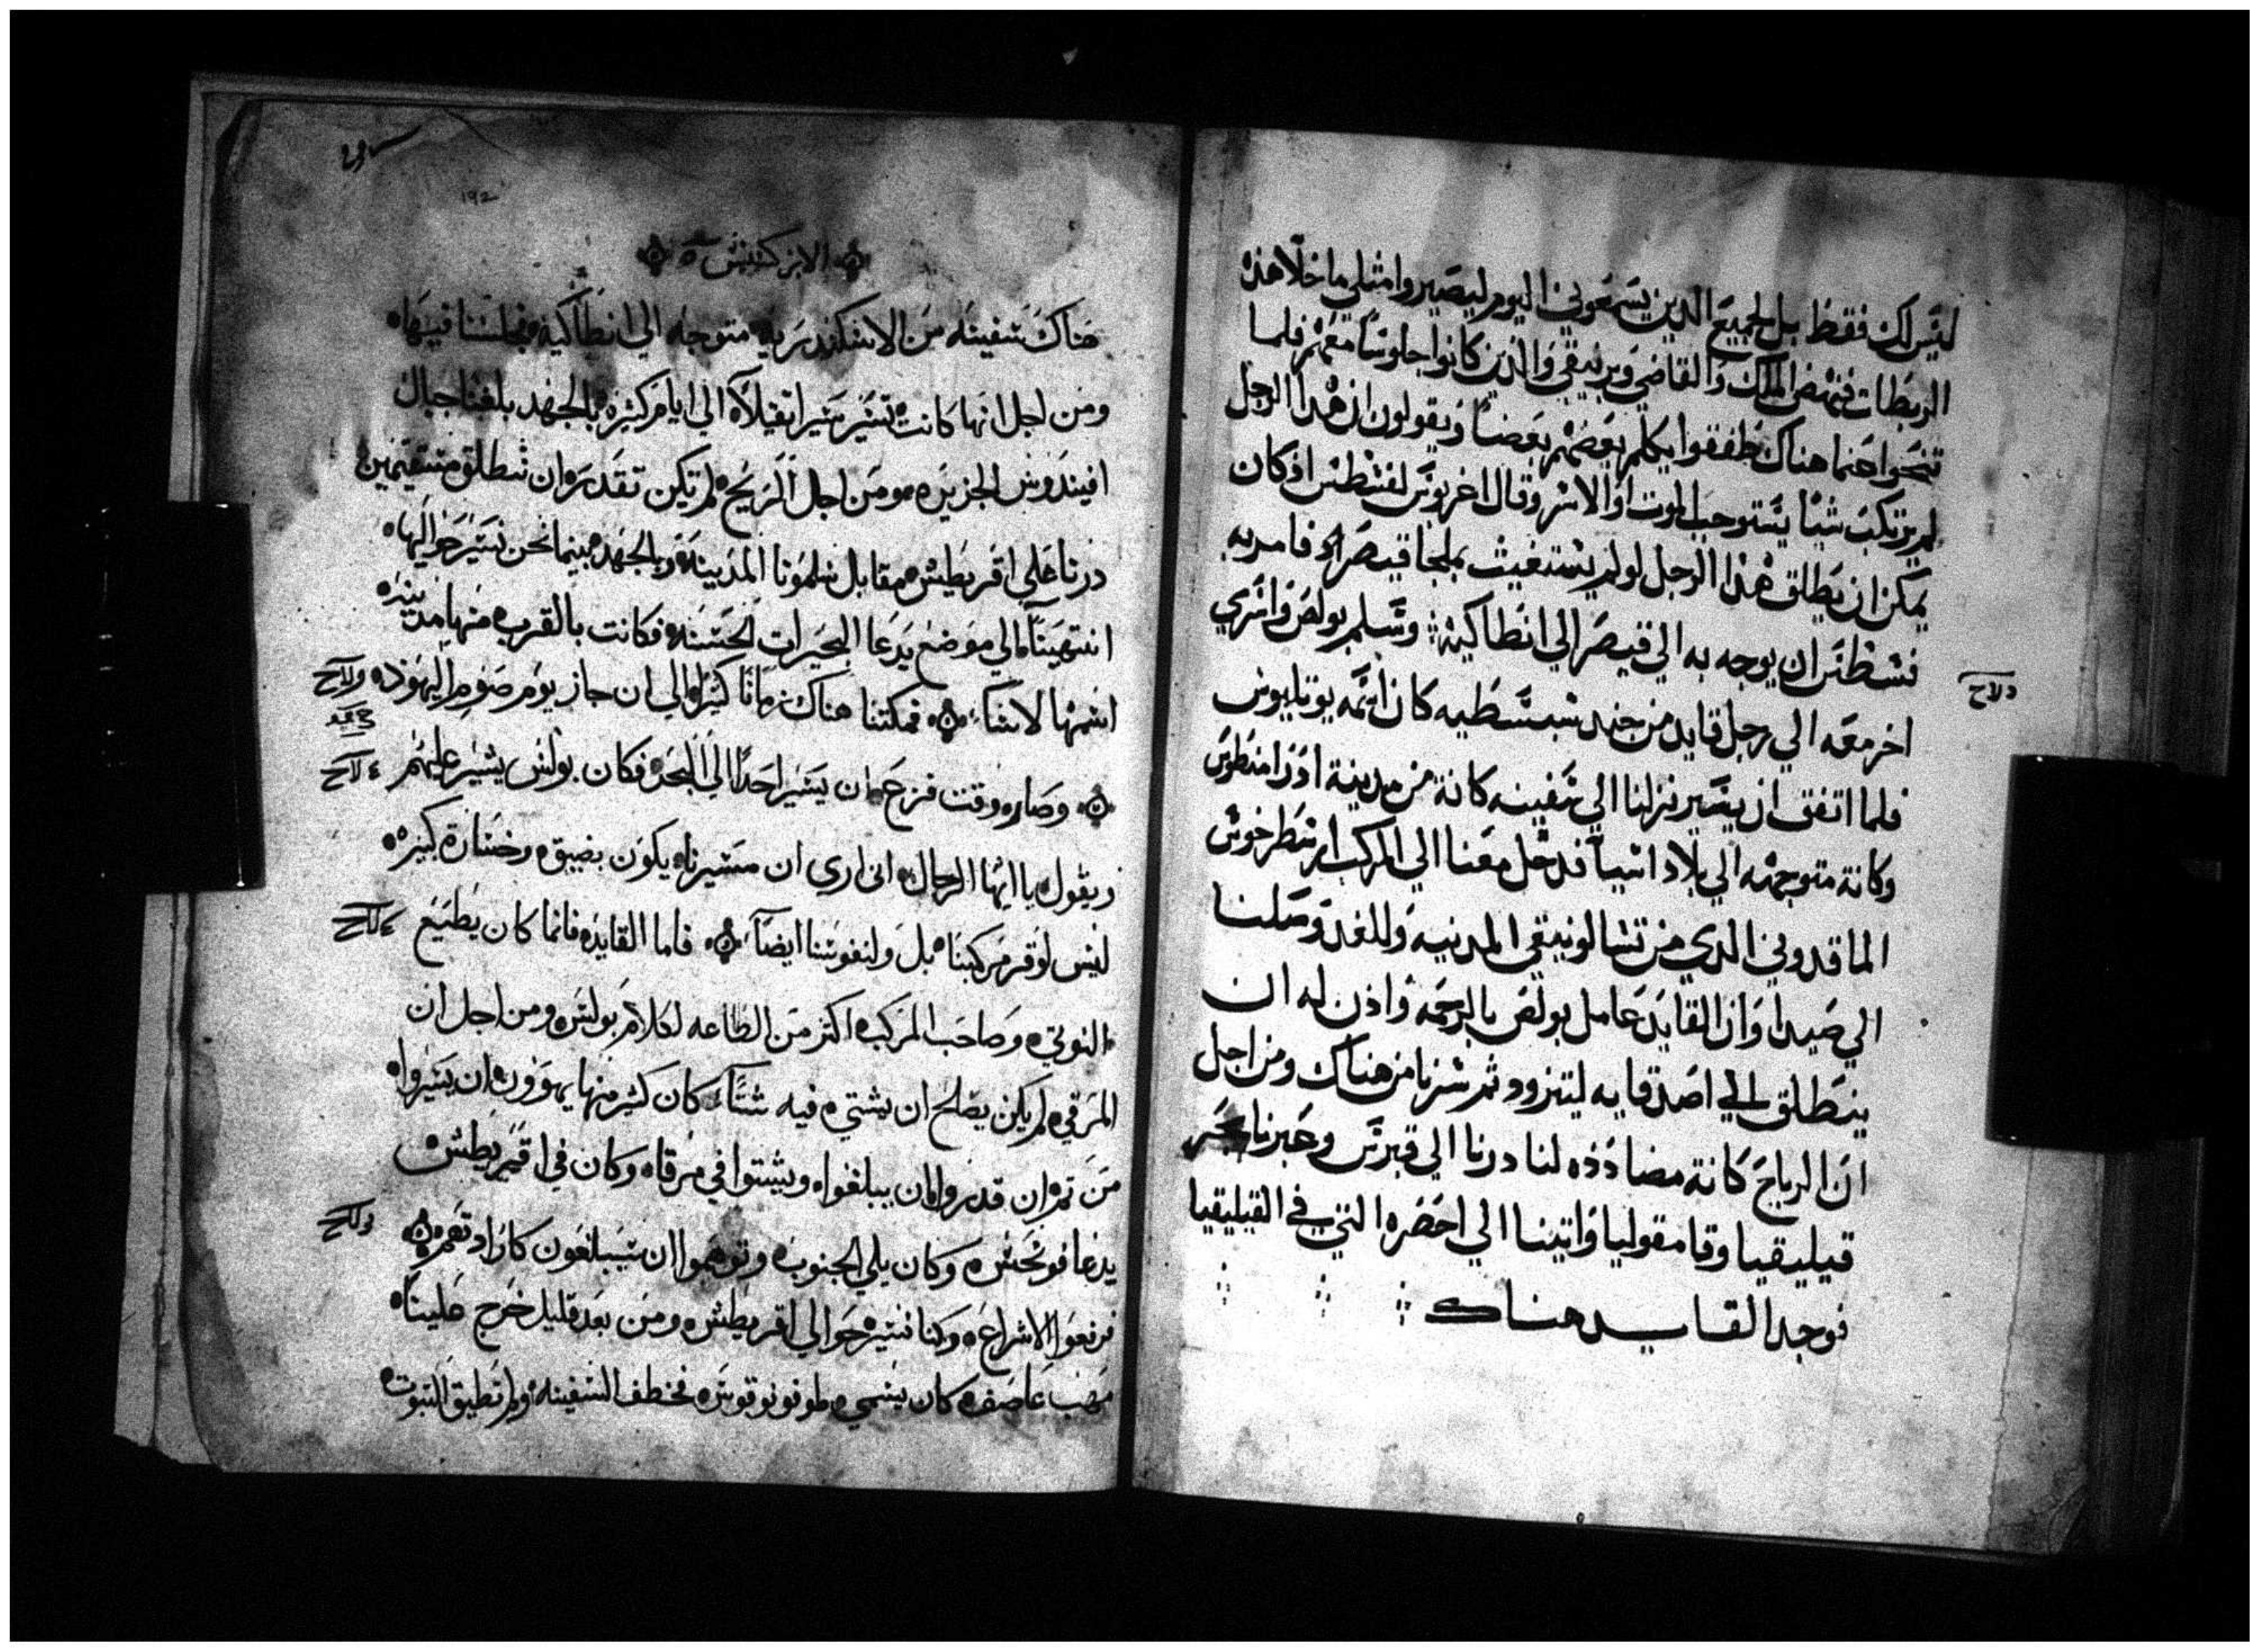 ليس لك فقط بل لجميع الدين يسمعوني اليوم ليصيروا مثلي ما خلا هذه
الربطات فنهض الملك والقاضي وبرنيقي والذين كانوا جلوسًا معهم فلما
تنحوا عنما هناك طفقوا يكلم بعضهم بعضًا ويقولون ان هذا الرجل
لم يرتكب شيًا يستوجب الموت او الاسر وقال اغربوس لفسطس اذ كان
يمكن ان يطلق هذا الرجل لو لم يستغيث بملجا قيصر فامر به
فسطس ان يوجه به الي قيصر الي انطاكية وسلم بولص واسري
اخر معه الي رجل قايد من جند سبسطيه كان اسمه يوليوس
فلما اتفق ان يسير نزلنا الي سفينه كانة من مدينة ادرامنطوس
وكانة متوجهه الي بلاد اسيا فدخل معنا الي المركب ارسطرخوس
الماقدوني الدي من تسالونيقي المدينه وللغد وصلنا
الي صيدا وان القايد عامل بولص بالرحمه واذن له ان
ينطلق الي اصدقايه ليتزود ثم سرنا من هناك ومن اجل
ان الرياح كانة مضاددذه لنا درنا الي قبرس وعبرنا بحر
قيليقيا وقامقوليا واتينا الي احضره التي في القيليقيا
فوجد القايد هناك
ولاح
192
الابركسيس
هناك سفينه من الاسكندريه متوجه الي انطاكية فجلسنا فيها
ومن اجل انها كانت تسير سيرا تقيلًا الي ايام كثيره بالجهد بلغنا جبال
افيندوس الجزيره ومن اجل الريح لم تكن تقدره ان تنطلق مستقيمين
درنا علي اقريطش مقابل سلمونا المدينة وبالجهد بينما نحن نسير حواليها
انتهينا الي موضع يدعا البحيرات الحسنه فكانت بالقرب منها مدينه
اسمها لاسا فمكتنا هناك زمانًا كثيرا الي ان جاز يوم صوم اليهوذ
وصاره وقت فزع ان يسير احدًا الي البحر فكان بولس يشير عليهم
ويقول يا ايها الرجال اني اري ان مسيرناه يكون بضيقه وخسارة كبيره
ليس لوقر مركبنا بل ولنفوسنا ايضًا فاما القايده فانما كان يطيع
النوتي وصاحب المركب اكثر من الطاعه لكلام بولس ومن اجل ان
المرقي لم يكن يصلح ان يشتي فيه شتًا كان كثير منها يهوون ان يسيروا
من تم ان قدروا ان يبلغوا ويشتوا في مرقاه وكان في اقريطش
يدعا فونحس وكان يلي الجنوب وتوهموا ان سيبلغون كارادتهم
فرفعوا الاشراع وكنا نسير حوالي اقريطش ومن بعد قليل خرج علينا
مهب عاصف كان يسمي طوفونوقوس فخطف السفينه ولم تطيق التبوت